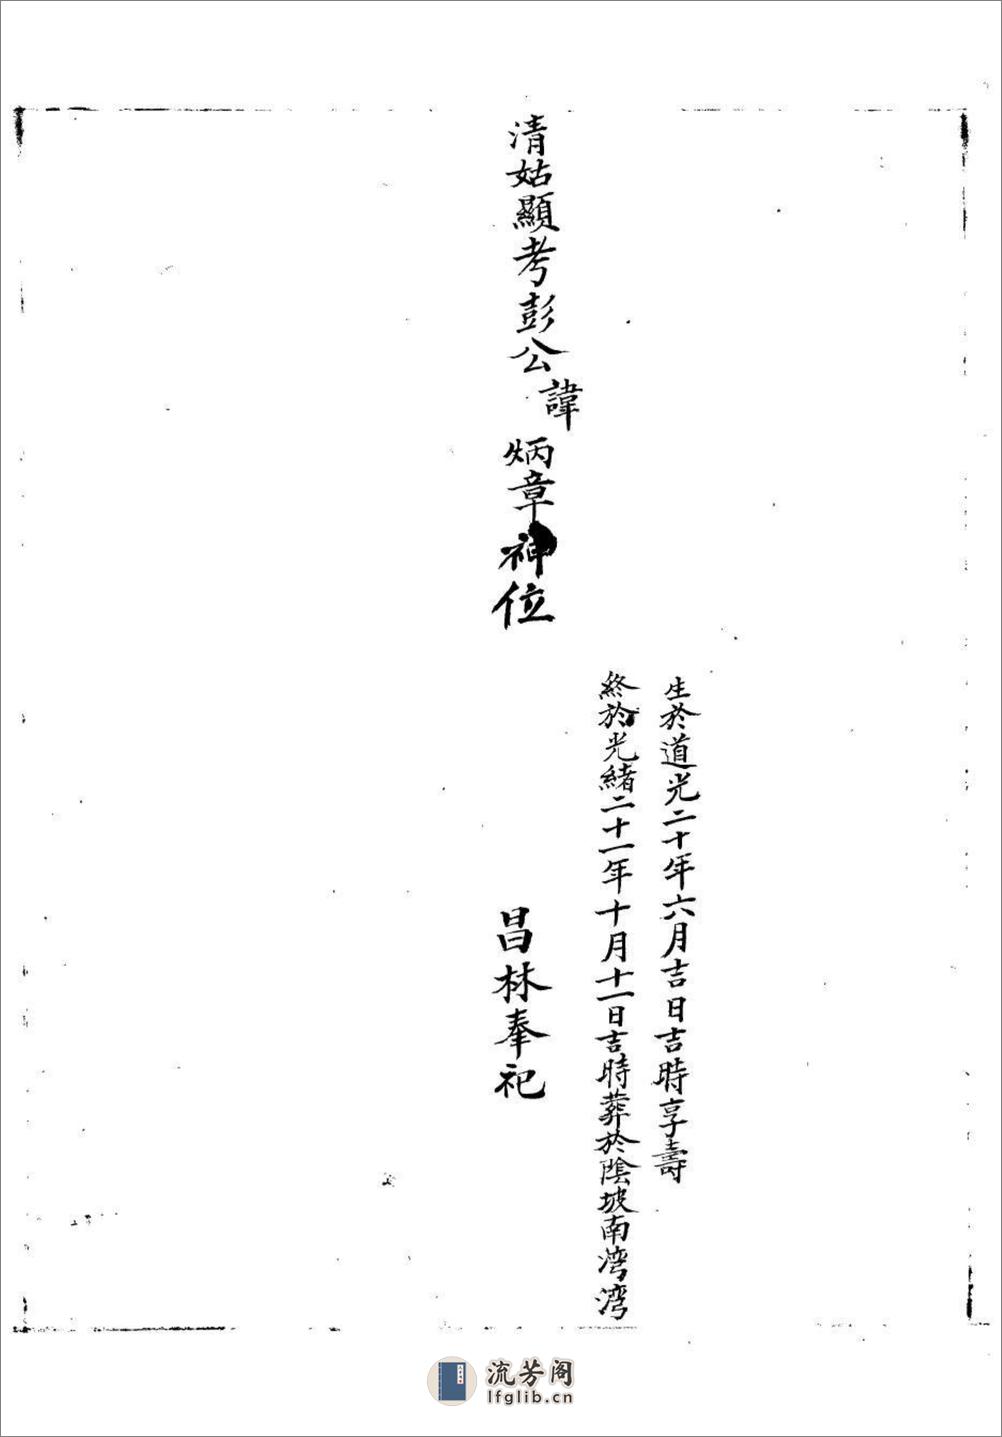 生於道光二十年六月吉日吉時享壽
終於光緒二十一年十月十一日吉時葬於陰坡南湾湾
清姑顯考彭公諱炳章神位
昌林奉祀
流芳阁
lfglib.cn